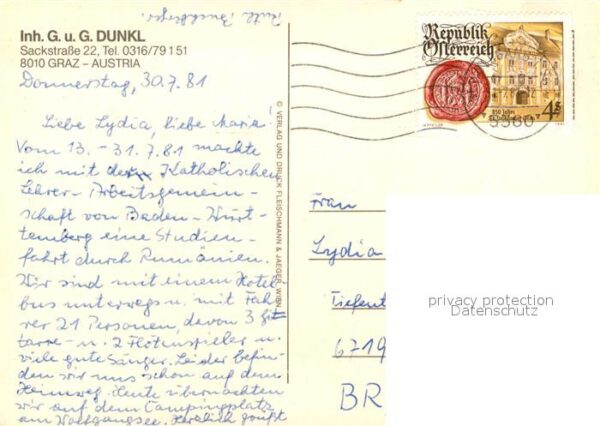 Ruth
Inh. G. u. G. DUNKL
Sackstraße 22, Tel. 0316/79151
8010 GRAZ – AUSTRIA
Donnerstag, 30.7.81
Liebe Lydia, liebe Maria!
Vom 13. – 31.7.81 machte
ich mit der Katholischen
Lehrer-Arbeitsgemein-
schaft von Baden-Würt-
temberg eine Studien-
fahrt durch Rumänien.
Wir sind mit einem Hotel
bus unterwegs u. mit Fah-
rer 21 Personen, davon 3 Git
tarre- u. 2 Flötenspieler u.
viele gute Sänger. Leider befin-
den wir uns schon auf dem
Heimweg. Heute übernachten
wir auf dem Campingplatz
am Wolfgangsee. Herzlich grüßt
© VERLAG UND DRUCK FLEISCHMANN & JAEGER, WIEN
Republik
Österreich
850 Jahre
4
5360
Frau
Lydia
Tiefent
6719
BR
privacy protection
Datenschutz